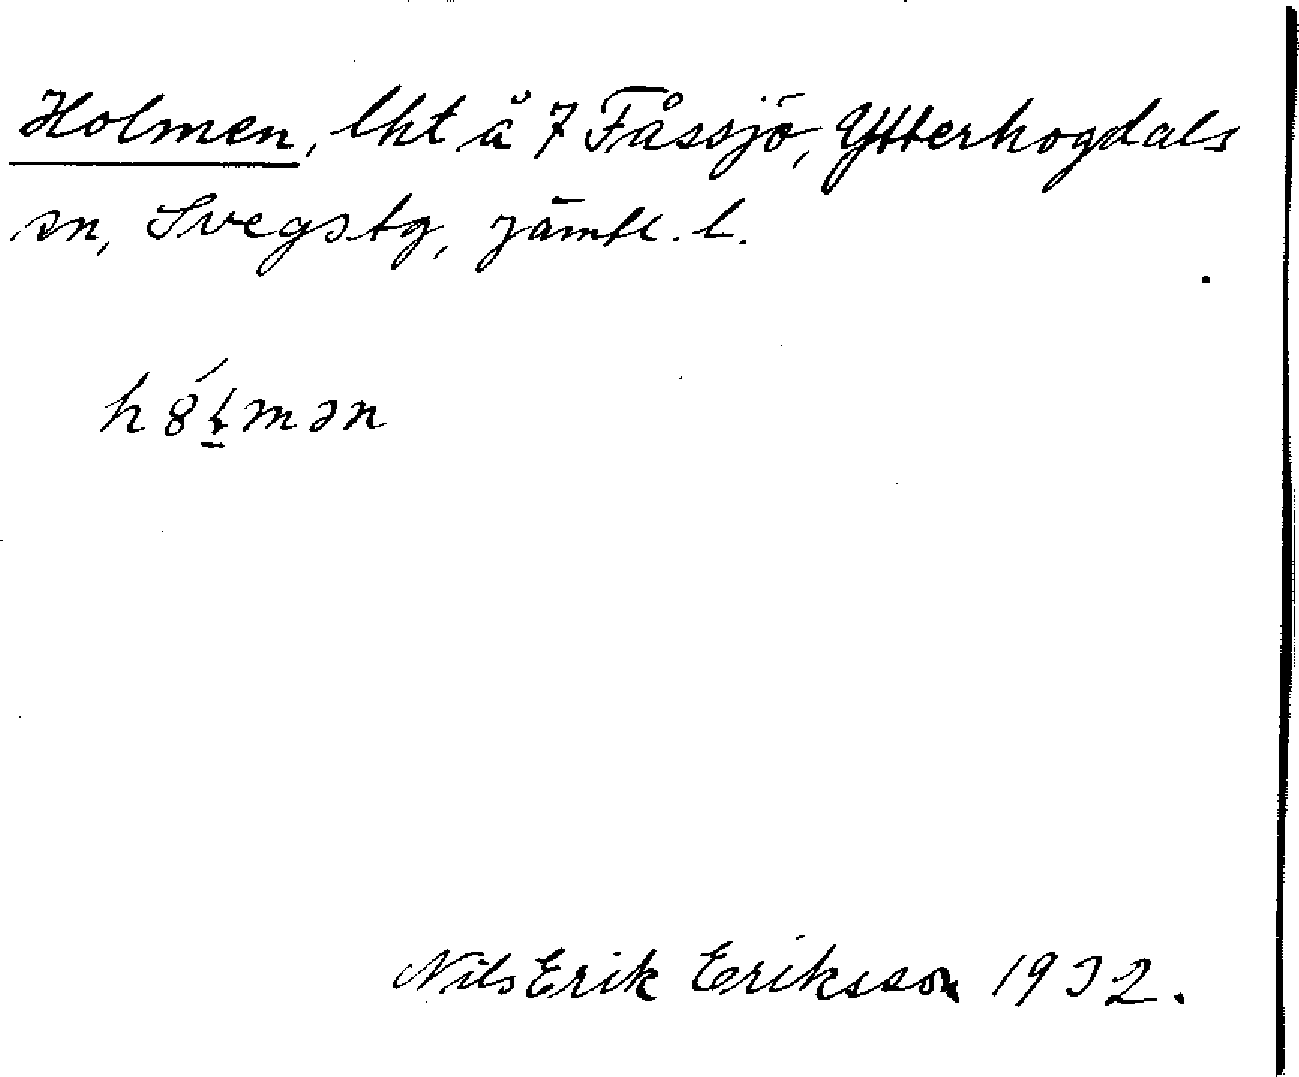 Holmen, lht å 7 Fåssjö, Ytterhogdals
sn, Svegs tg, Jämtl. l.
Nils Erik Eriksson 1932.